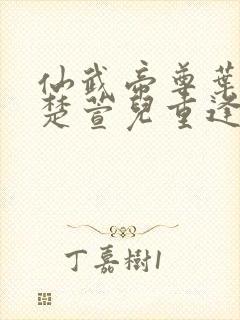 仙武帝尊葉
楚萱兒重逢
丁嘉樹1